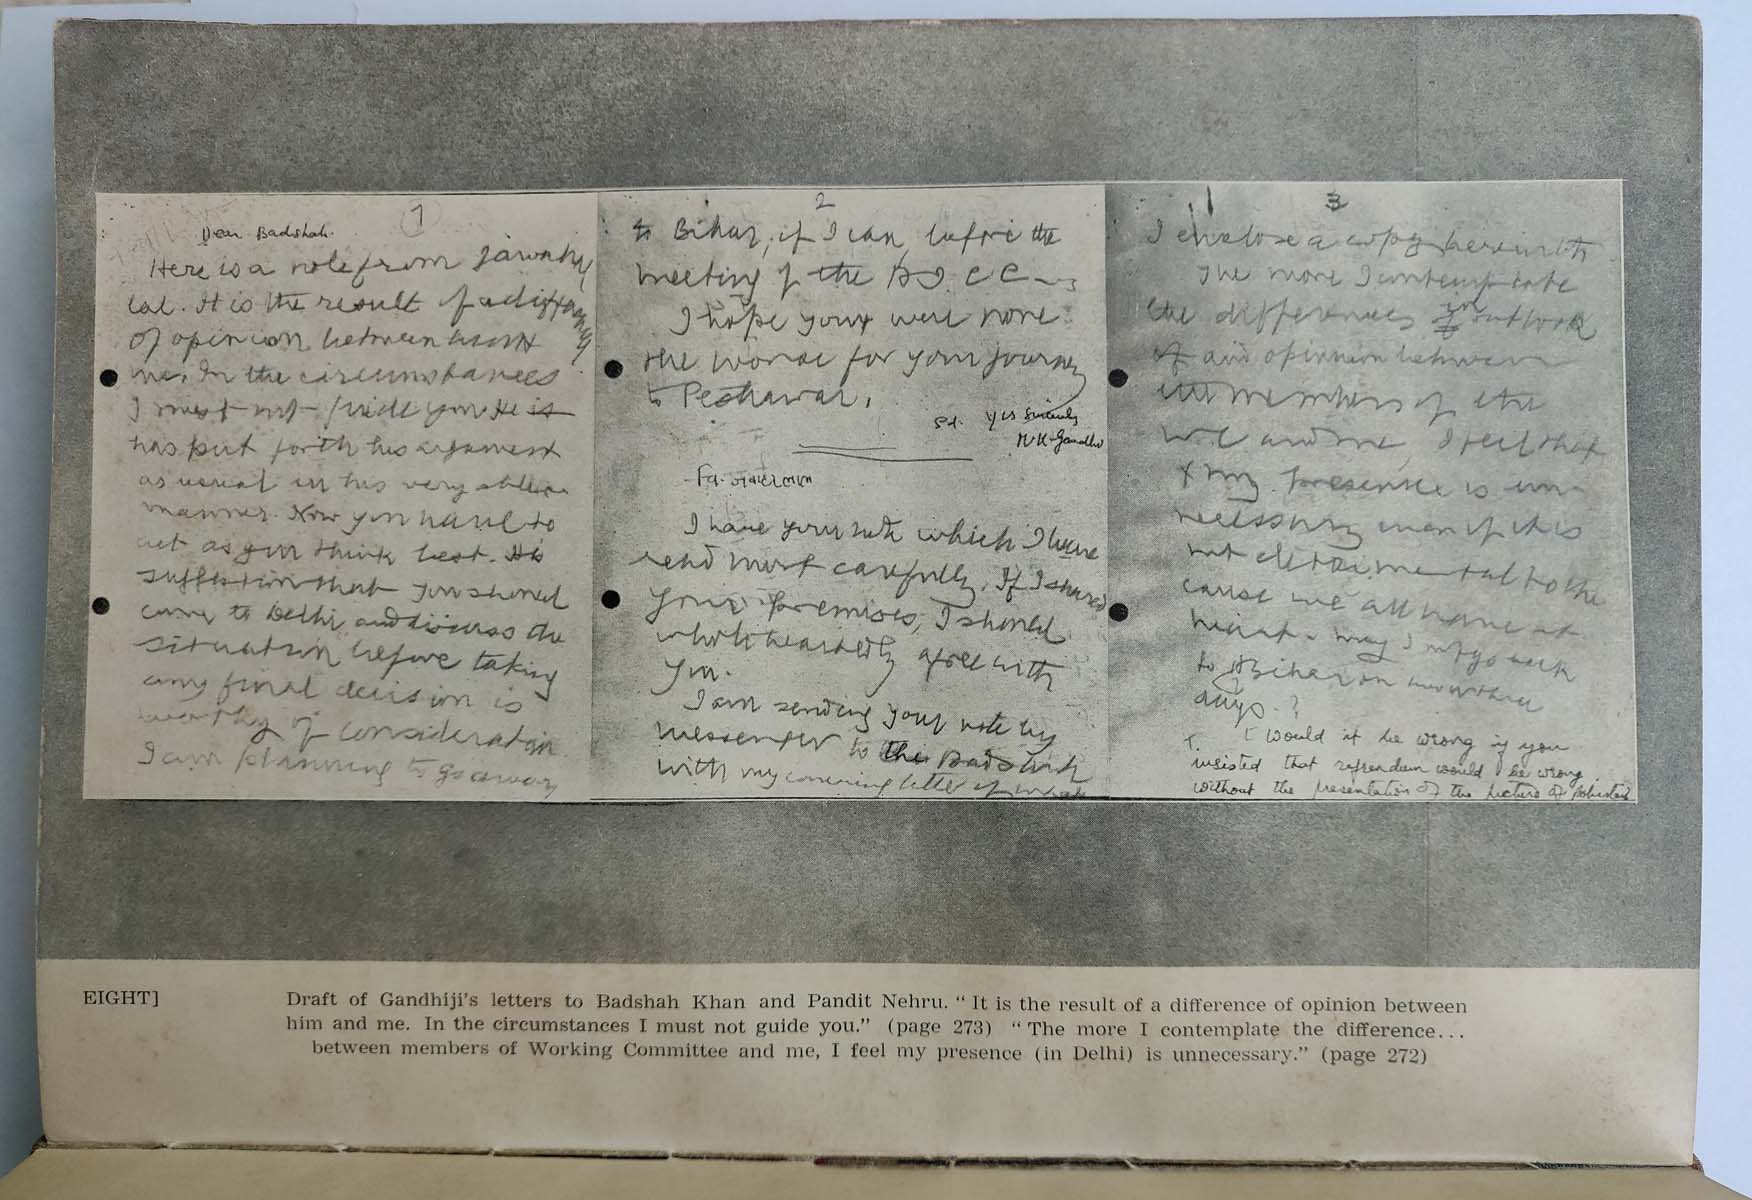 1
Dear Badshah.
Here is a note from Jawahar
lal. It is the result of a difference
of opinion between him &
me. In the circumstances
I must not guide you. He is
has put forth his argument
as usual in his very able
manner. Now you have to
act as you think best. His
suggestion that you should
come to Delhi and discuss the
situation before taking
any final decision is
worthy of consideration.
I am planning to go away
2
to Bihar, if I can, before the
meeting of the A.I.C.C.
I hope you were none
the worse for your journey
to Peshawar.
Sd. Yrs sincerely
M.K. Gandhi
I have your note which I have
read most carefully. If I shared
your premises, I should
wholeheartedly agree with
you.
I am sending your note by
messenger to the Badshah
with my covering letter of which
3
I enclose a copy herewith.
The more I contemplate
the differences in outlook
of and opinion between
the members of the
W.C and me, I feel that
my presence is un-
necessary even if it is
not detrimental to the
cause we all have at
heart. May I not go back
to Bihar in two or three
days?
Would it be wrong if you
insisted that referendum would be wrong
without the presentation of the picture of Pakistan
EIGHT]
Draft of Gandhiji's letters to Badshah Khan and Pandit Nehru. “ It is the result of a difference of opinion between
him and me. In the circumstances I must not guide you.” (page 273) “ The more I contemplate the difference...
between members of Working Committee and me, I feel my presence (in Delhi) is unnecessary.” (page 272)